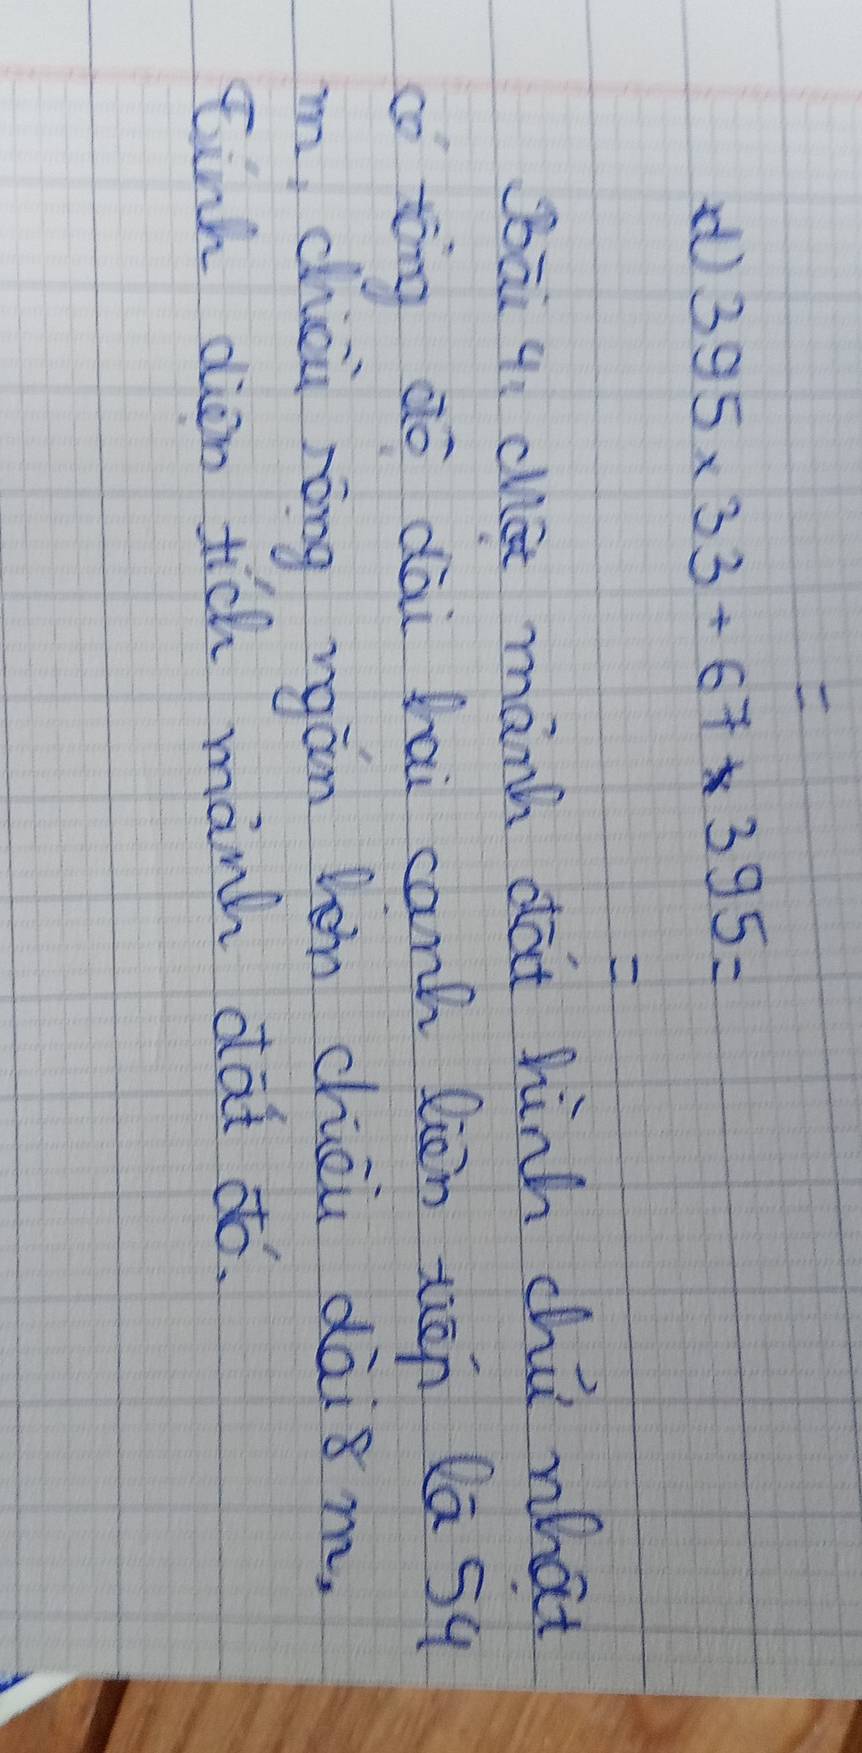 =
d) 395 × 33 + 67 × 395 =
=
Bài 4, Một mảnh đất hình chữ nhật
có tổng độ dài hai cạnh liên tiếp là 54
m, chiều rộng ngắn hơn chiều dài 8 m,
Tính diện tích mảnh đất đó.